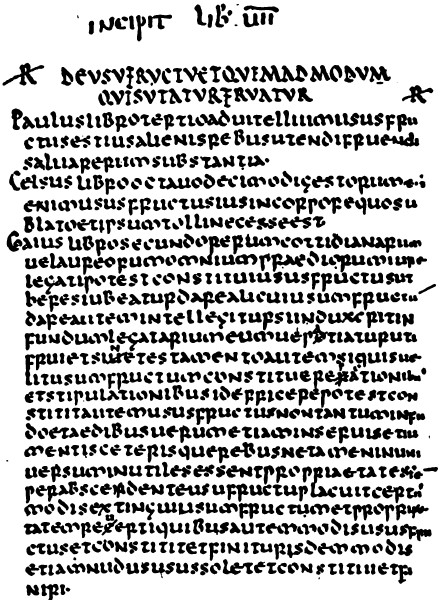 INCIPIT LIB· VII
R DEUSUFRUCTUETQUEMADMODUM
QUISUTATURFRUATUR R
Pauluslibrotertioaduitelliumususfru
ctusestiusalienisrebusutendifruendi
saluarerumsubstantia.
Celsuslibrooctauodecimodigestorume·i
enimususfructusiusincorporequosu
blatoetipsumtollinecesseest
Gaiuslibrosecundorerumcottidianarum
uelaureorumomniumpraediorumiure
legatipotestconstituiususfructusut
heresiubeaturdarealicuiusumfructu
dareautemintellegitursiinduxeritin
fundumlegatariumeumuepatiaturuti
fruietsinetestamentoautemsiquisue
litusumfructumconstituerepactionib
etstipulationibusidefficerepotestcon
stititautemususfructusnontantuminfu
doetaedibusuerumetiaminseruisetiu
mentisceterisquerebusnetameninuni
uersuminutilesessentproprietatesse
perabscedenteusufructuplacuitcerti
modisextinguiusumfructumetproprie
tatemreuertiquibusautemmodisususfr
ctusetconstititetfiniturisdemmodis
etiamnudususussoletetconstituietf
niri·